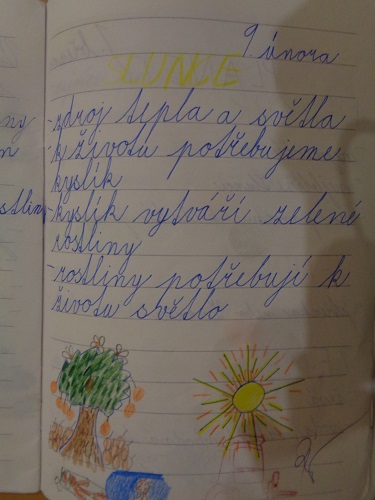 9 února
SLUNCE
-zdroj tepla a světla
-k životu potřebujeme
kyslík
-kyslík vytváří zelené
rostliny
-rostliny potřebují k
životu světlo